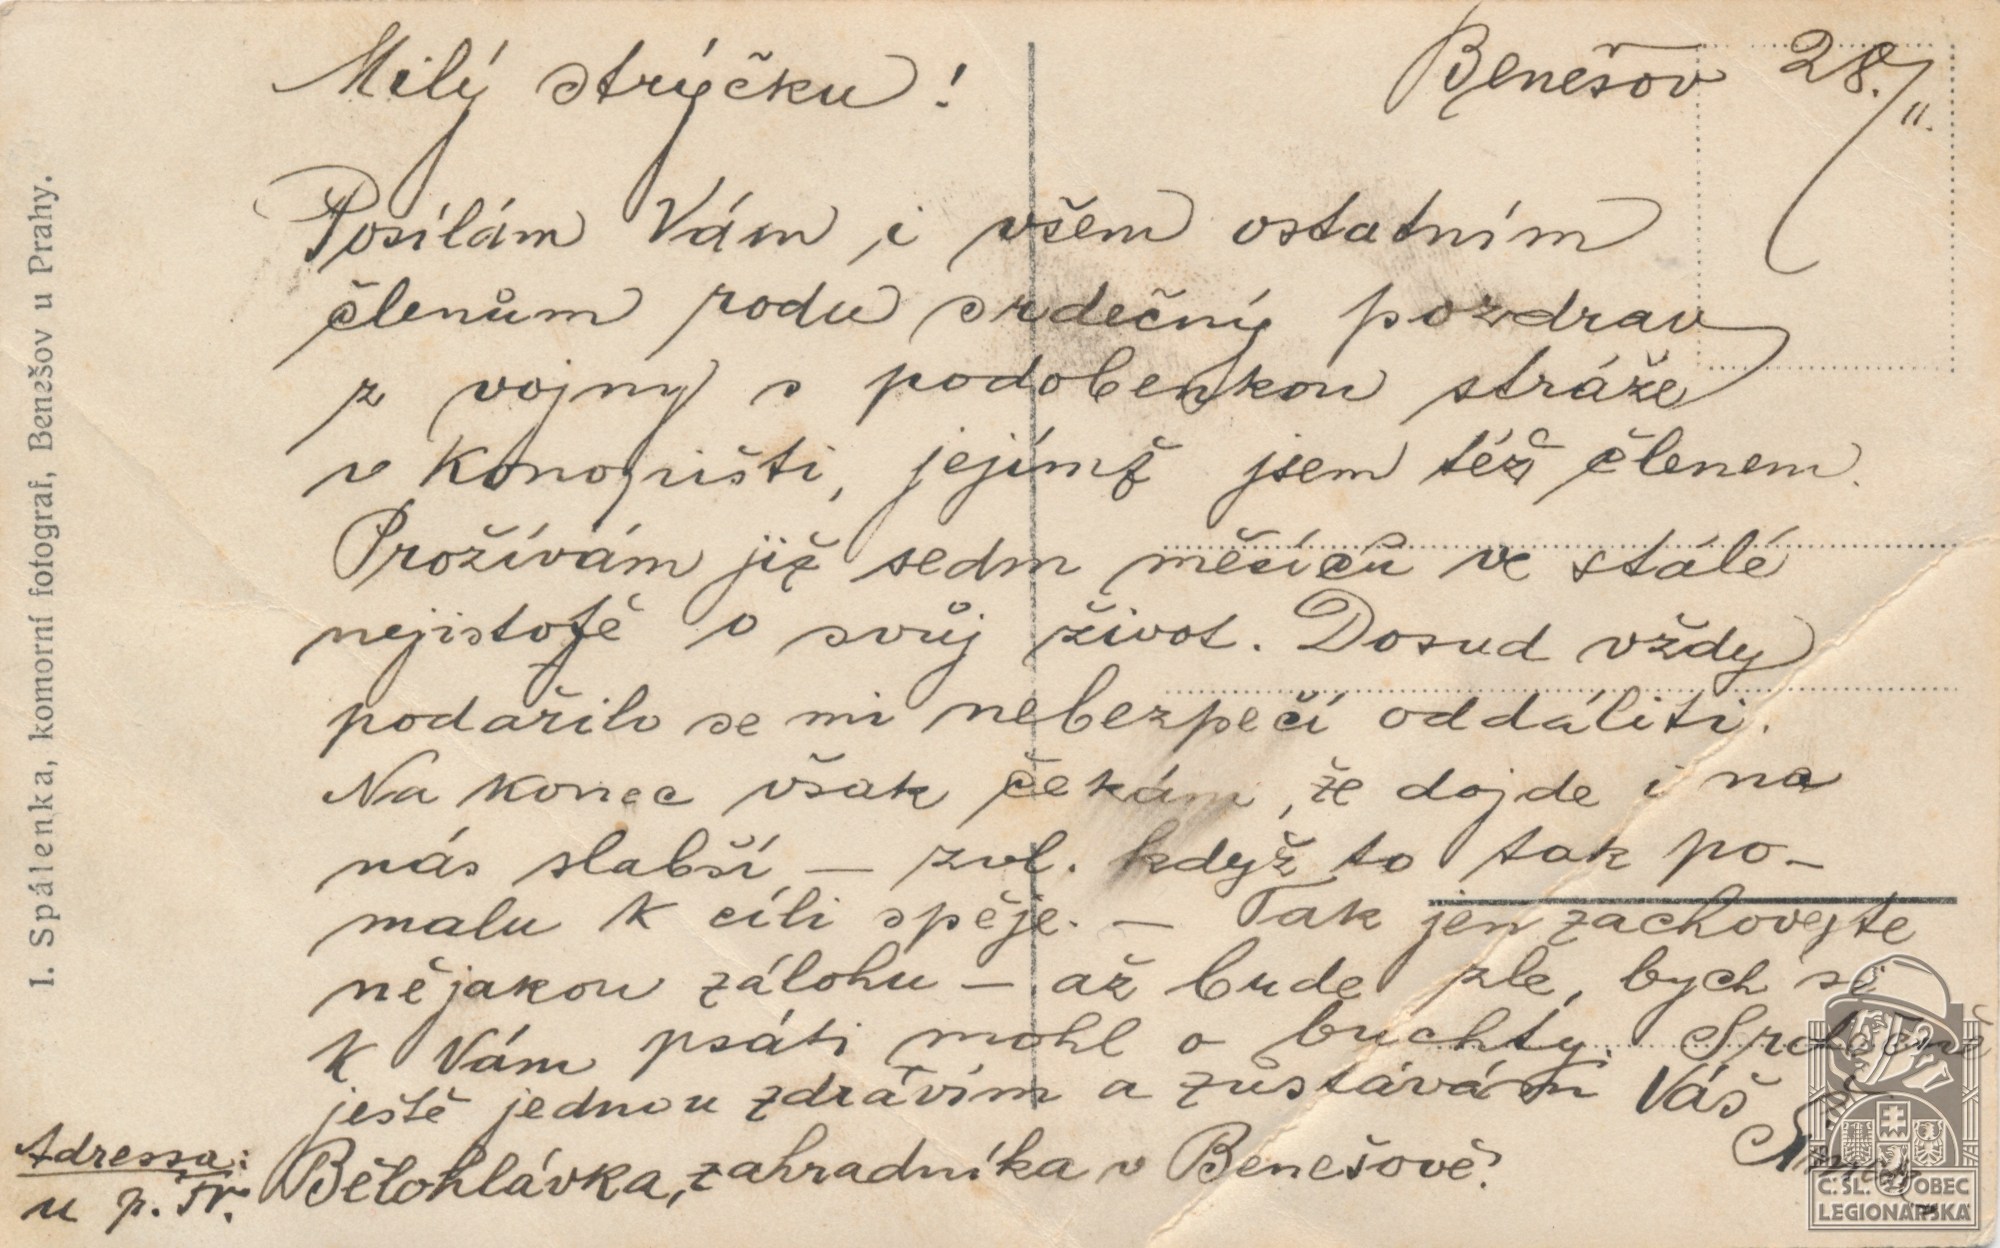 Milý strýčku!
Benešov 28./II.
Posílám Vám i všem ostatním
členům rodu srdečný pozdrav
z vojny s podobenkou stráže
v Konopišti, jejímž jsem též členem.
Prožívám již sedm měsíců ve stálé
nejistotě o svůj život. Dosud vždy
podařilo se mi nebezpečí oddáliti.
Na konec však čekám, že dojde i na
nás slabší — zvl. když to tak po-
malu k cíli spěje. — Tak jen zachovejte
nějakou zálohu — až bude zle, bych si
k Vám psáti mohl o buchty. Srdečně
ještě jednou zdravím a zůstávám Váš
Adressa:
u p. Fr. Bělohlávka, zahradníka v Benešově.
I. Spálenka, komorní fotograf, Benešov u Prahy.
Č. SL. OBEC
LEGIONÁŘSKÁ